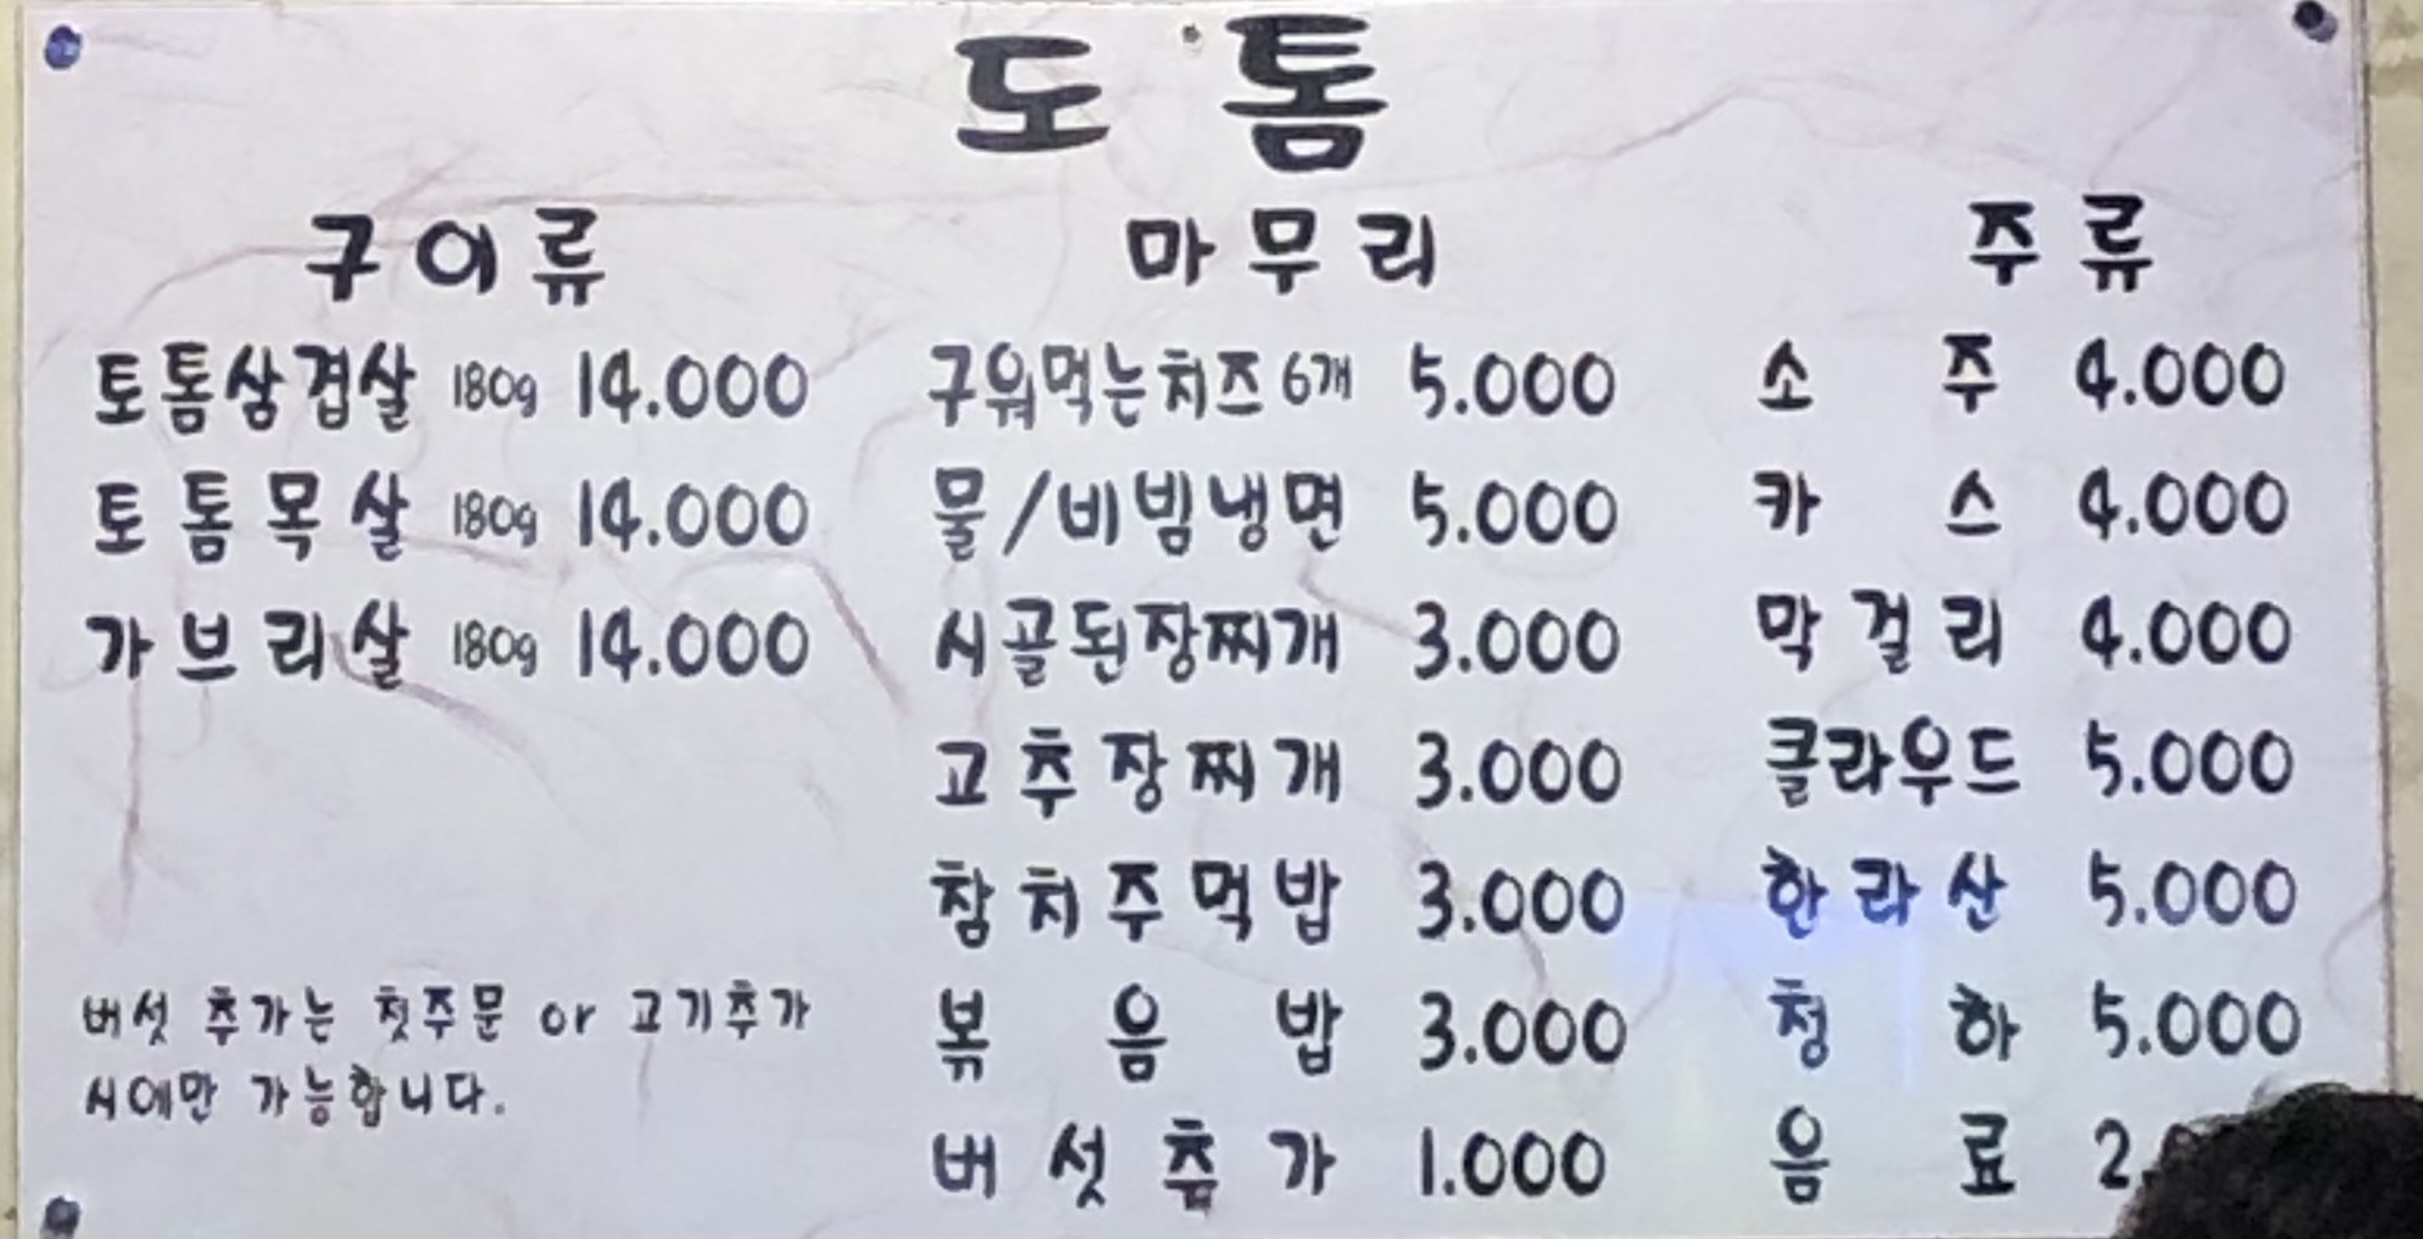 도톰
구이류
토톰삼겹살 180g 14.000
토톰목살 180g 14.000
가브리살 180g 14.000
버섯 추가는 첫주문 or 고기추가
시에만 가능합니다.
마무리
구워먹는치즈 6개 5.000
물/비빔냉면 5.000
시골된장찌개 3.000
고추장찌개 3.000
참치주먹밥 3.000
볶음밥 3.000
버섯추가 1.000
주류
소주 4.000
카스 4.000
막걸리 4.000
클라우드 5.000
한라산 5.000
청하 5.000
음료 2.